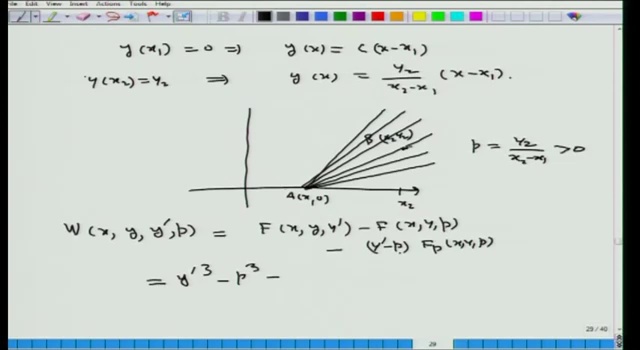 Edit View Insert Actions Tools Help
y(x₁) = 0 ⇒ y(x) = c(x-x₁)
y(x₂) = y₂ ⇒ y(x) = y₂/(x₂-x₁) (x-x₁).
B(x₂,y₂)
p = y₂/(x₂-x₁) > 0
A(x₁,0) x₂
W(x, y, y', p) = F(x, y, y') - F(x, y, p)
- (y'-p) Fp(x,y,p)
= y'³ - p³ -
29 / 40
29